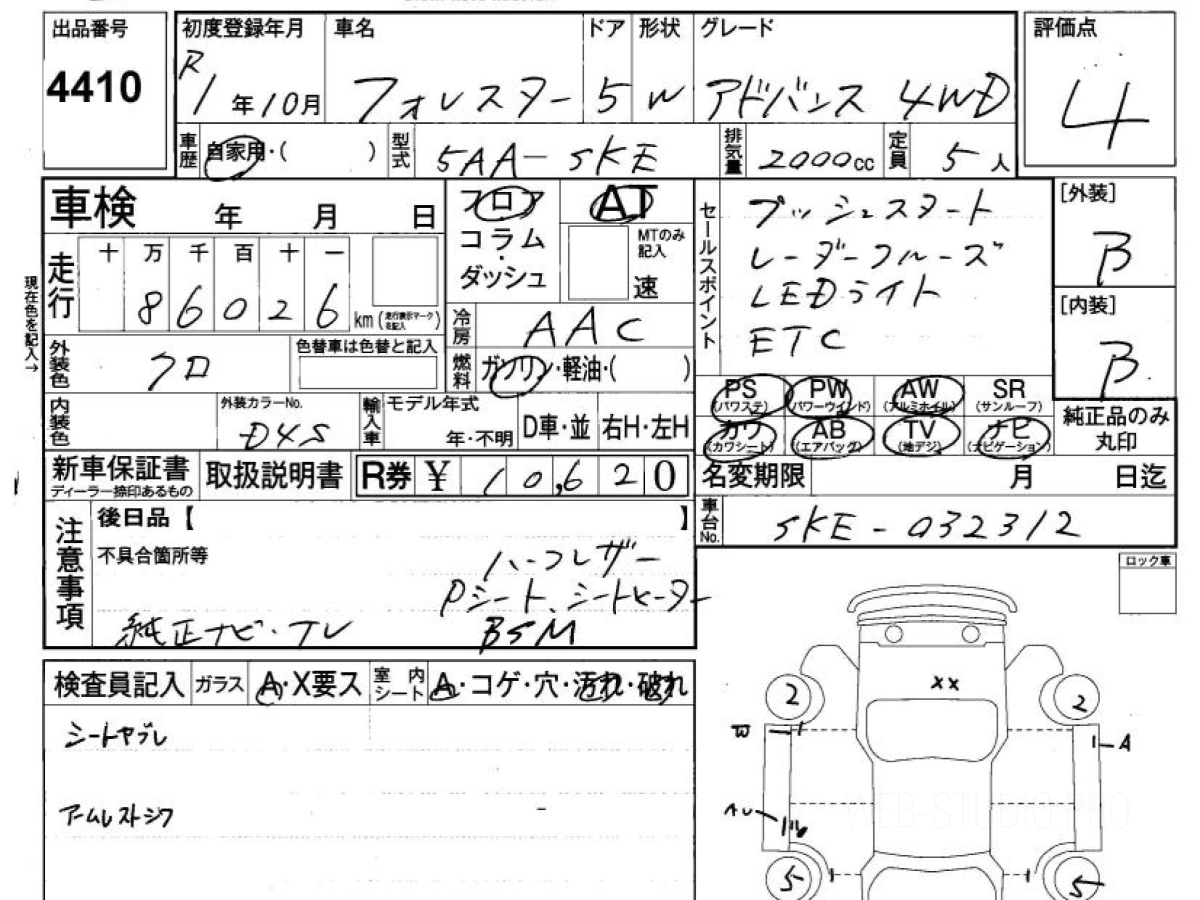 出品番号
4410
初度登録年月 車名 ドア 形状 グレード 評価点
R1年10月 フォレスター 5 W アドバンス 4WD 4
車歴 自家用・( ) 型式 5AA-SKE 排気量 2000cc 定員 5人
車検 年 月 日
フロア
コラム
・
ダッシュ
AT
MTのみ記入
速
セールスポイント
プッシュスタート
レーダークルーズ
LEDライト
ETC
[外装]
B
[内装]
B
現在色を記入→
走行 十 万 千 百 十 一
86026 km (走行表示マークを記入)
冷房 AAC
燃料 ガソリン・軽油・( )
外装色 クロ 色替車は色替と記入
内装色 外装カラーNo. D4S
輸入車 モデル年式 年・不明 D車・並 右H・左H
PS (パワステ) PW (パワーウインド) AW (アルミホイル) SR (サンルーフ)
カワ (カワシート) AB (エアバッグ) TV (地デジ) ナビ (ナビゲーション)
純正品のみ
丸印
新車保証書
ディーラー捺印あるもの
取扱説明書 R券 ¥ 10,620
名変期限 月 日迄
車台No. SKE-032312
注意事項
後日品【 】
不具合箇所等
ハーフレザー
Pシート、シートヒーター
純正ナビ・TV BSM
ロック車
検査員記入 ガラス A・X要ス 室内シート A・コゲ・穴・汚れ・破れ
シートヤブレ
アームレストシワ
XX
2 2
W
A
AU
5 5
WEB-STUDIO.PRO